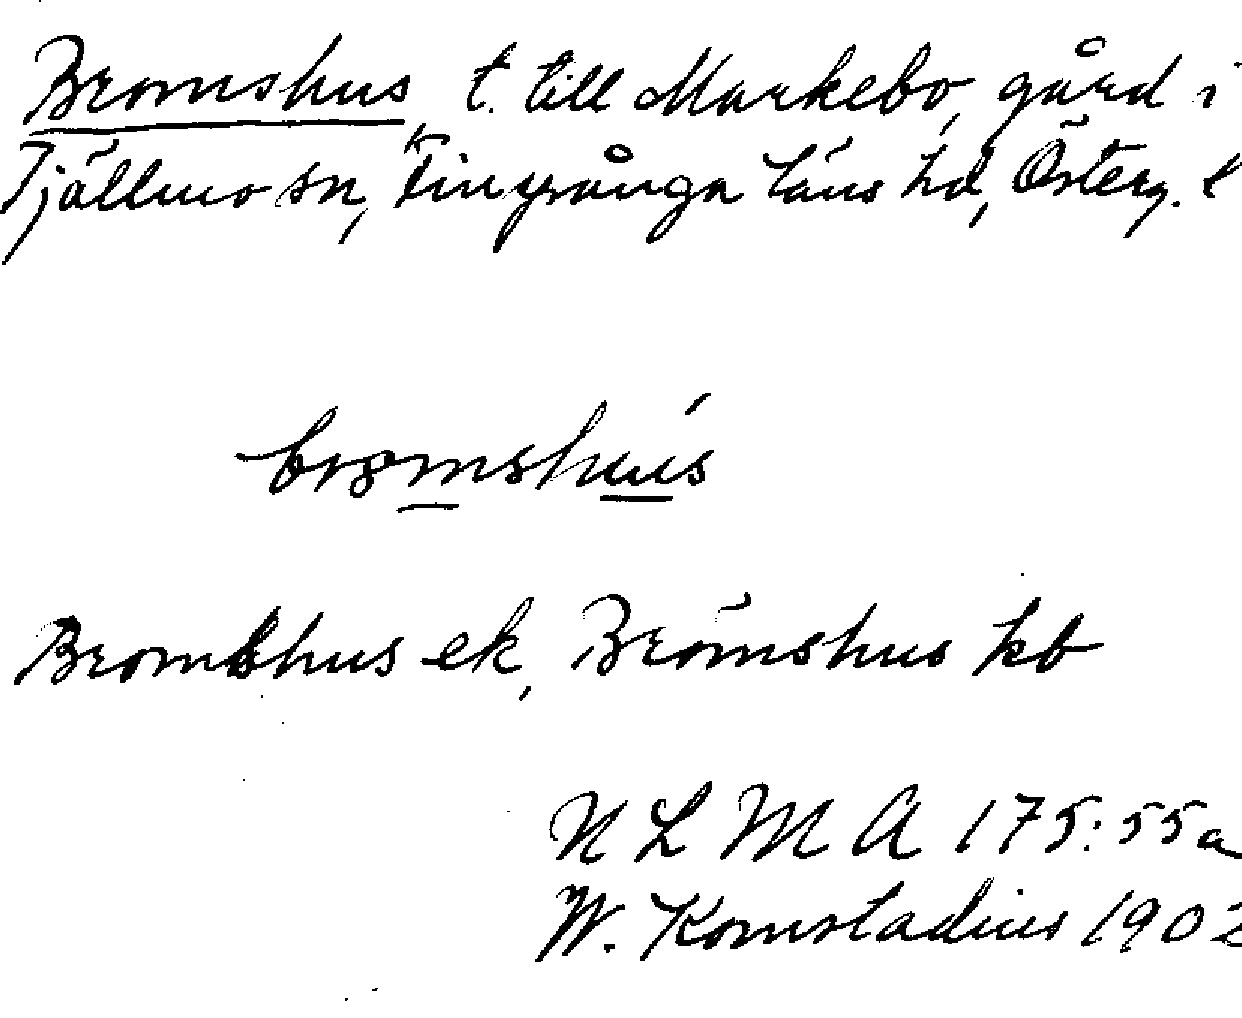 Bromshus, t. till Markebo, gård i
Tjällmo sn, Finspånga läns hd, Österg. l
Bromshus ek, Brömshus kb
N L M A 175:55a
W. Komstadius 1902